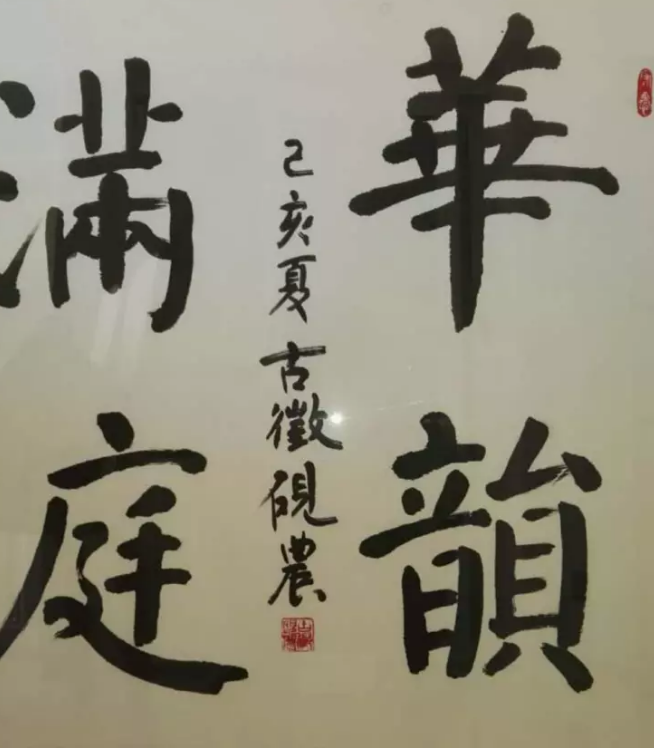 華韻
己亥夏古徽硯農
滿庭